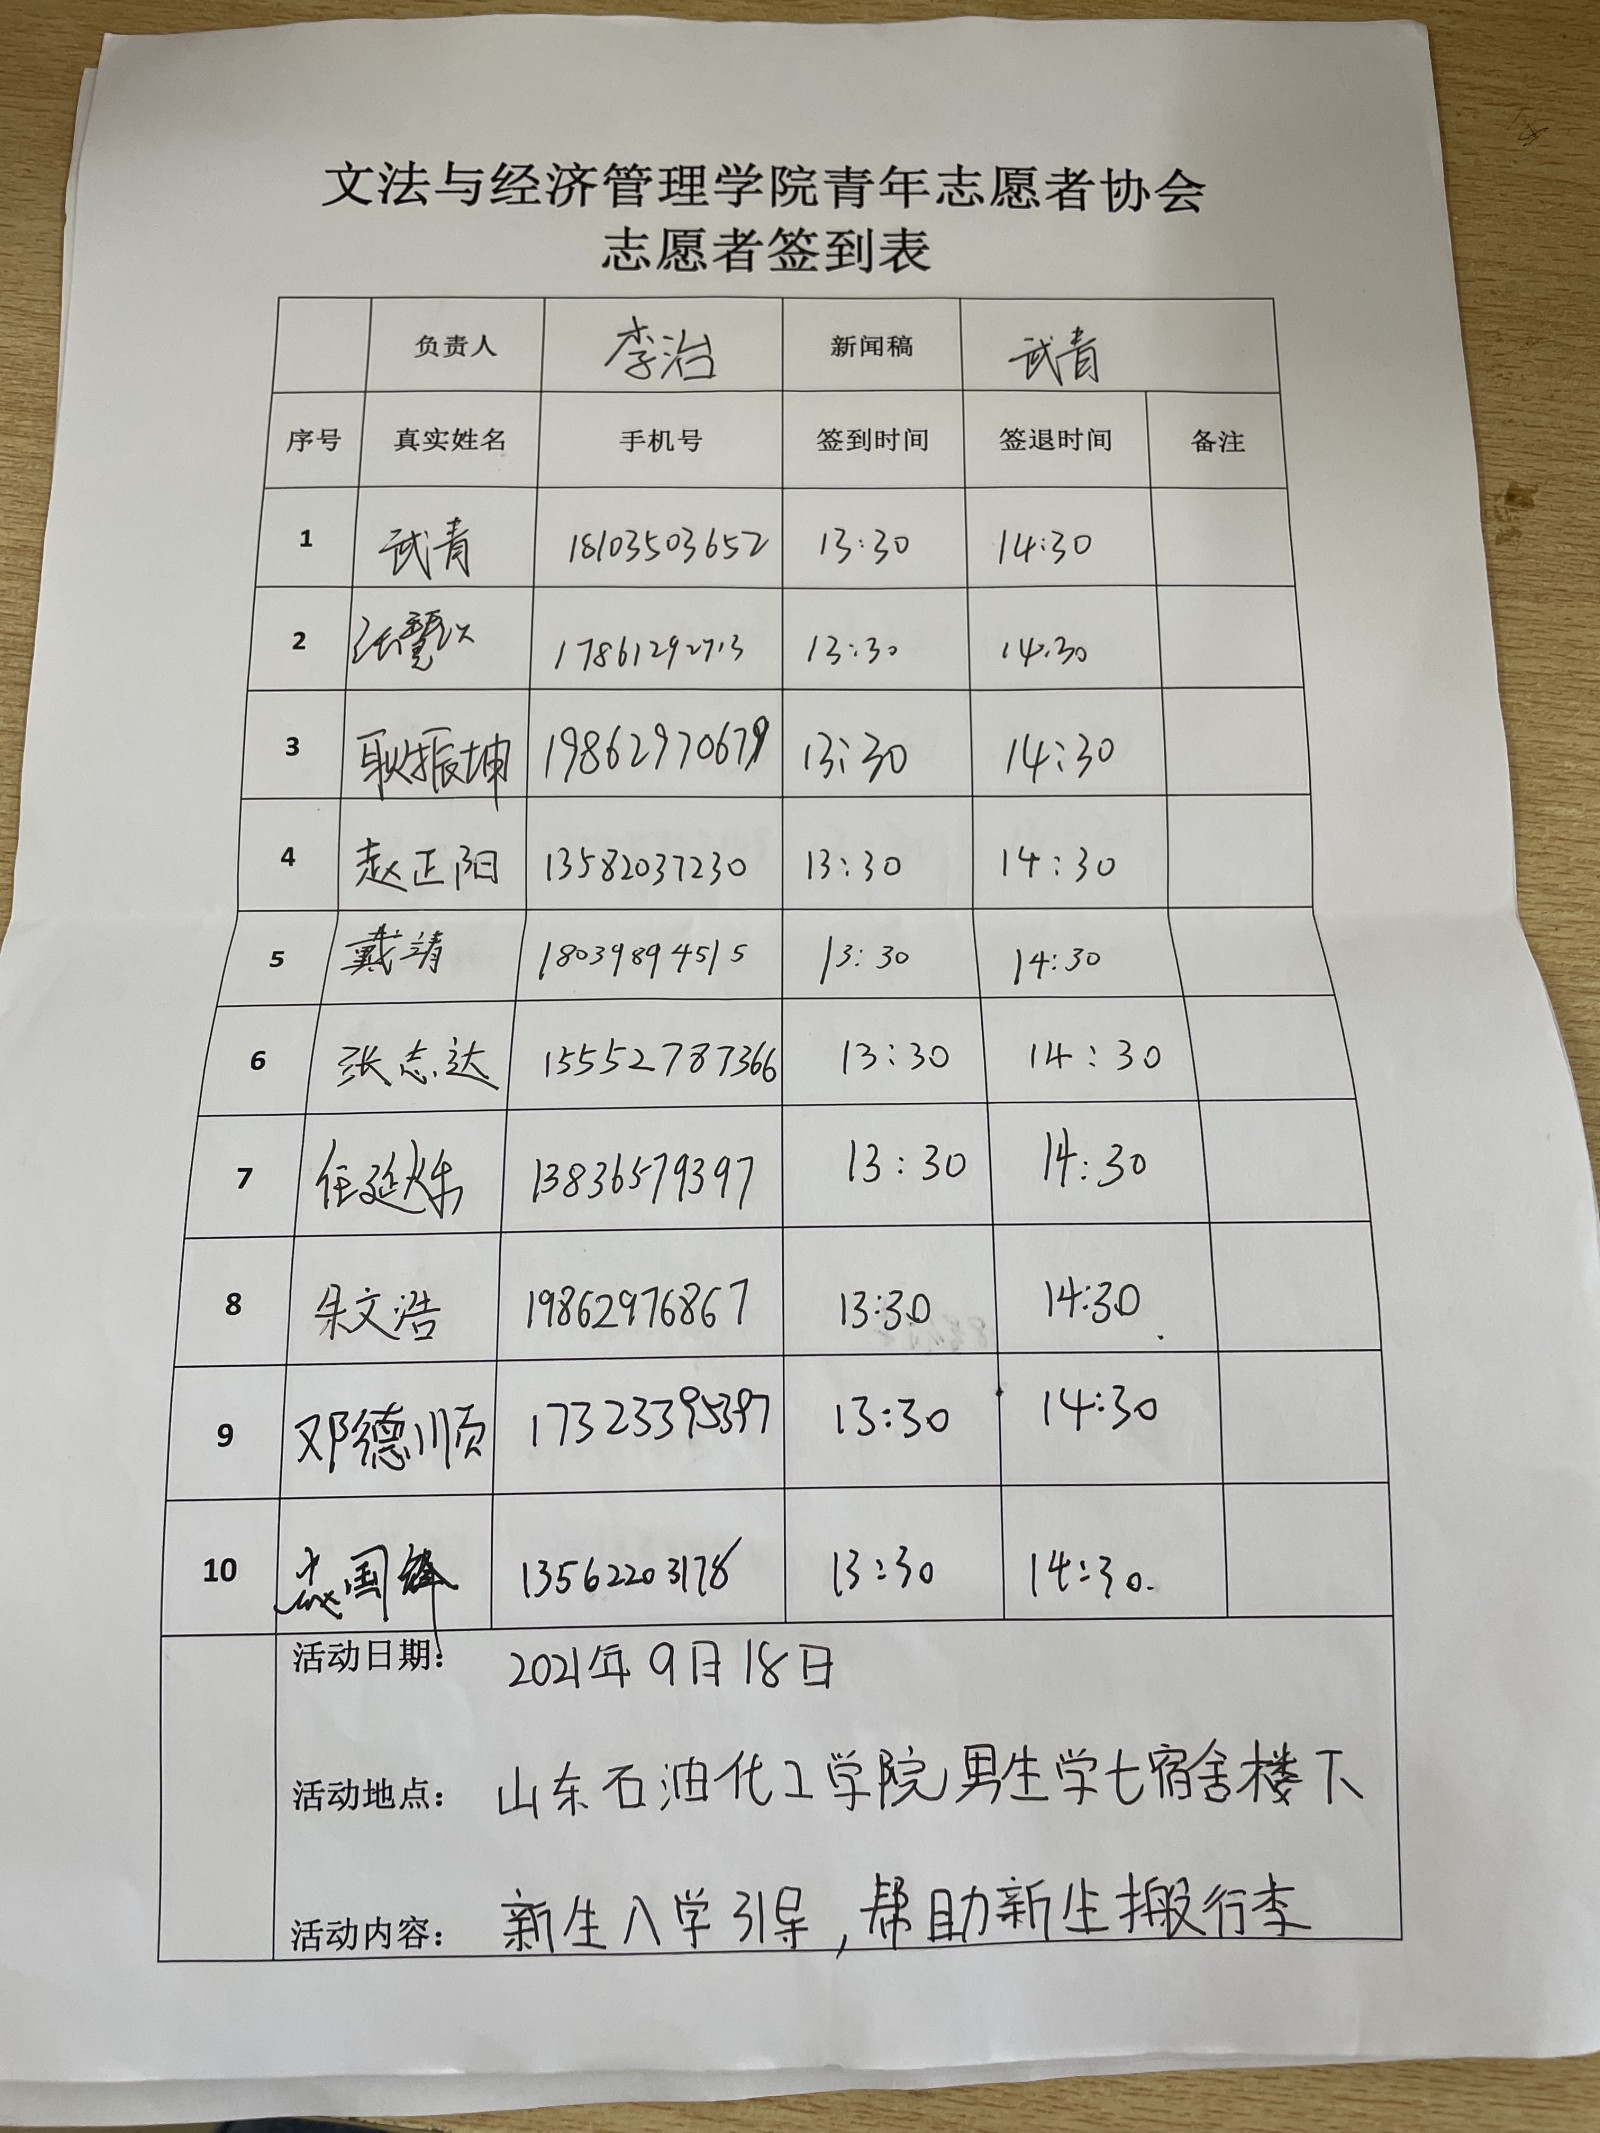 文法与经济管理学院青年志愿者协会
志愿者签到表
负责人 李治 新闻稿 武青
序号 真实姓名 手机号 签到时间 签退时间 备注
1 武青 18103503652 13:30 14:30
2 13:30 14:30
3 耿振坤 19862970679 13:30 14:30
4 赵正阳 13582037230 13:30 14:30
5 戴靖 18039894515 13:30 14:30
6 张志达 15552787366 13:30 14:30
7 任延烁 13836579397 13:30 14:30
8 朱文浩 19862976867 13:30 14:30
9 邓德顺 17323395397 13:30 14:30
10 国锋 13562203178 13:30 14:30.
活动日期: 2021年9月18日
活动地点: 山东石油化工学院男生学七宿舍楼下
活动内容: 新生入学引导,帮助新生搬行李